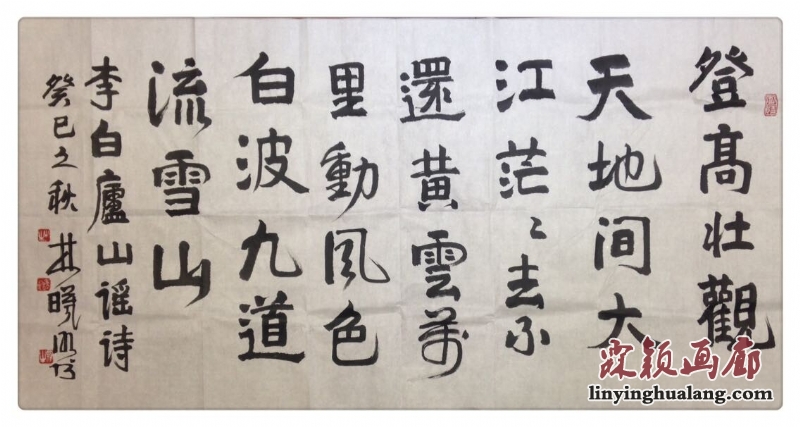 登高壮觀
天地间大
江茫〻去不
還黄雲萬
里動風色
白波九道
流雪山
李白廬山谣诗
癸巳之秋 林曦明
霖颖画廊
linyinghualang.com